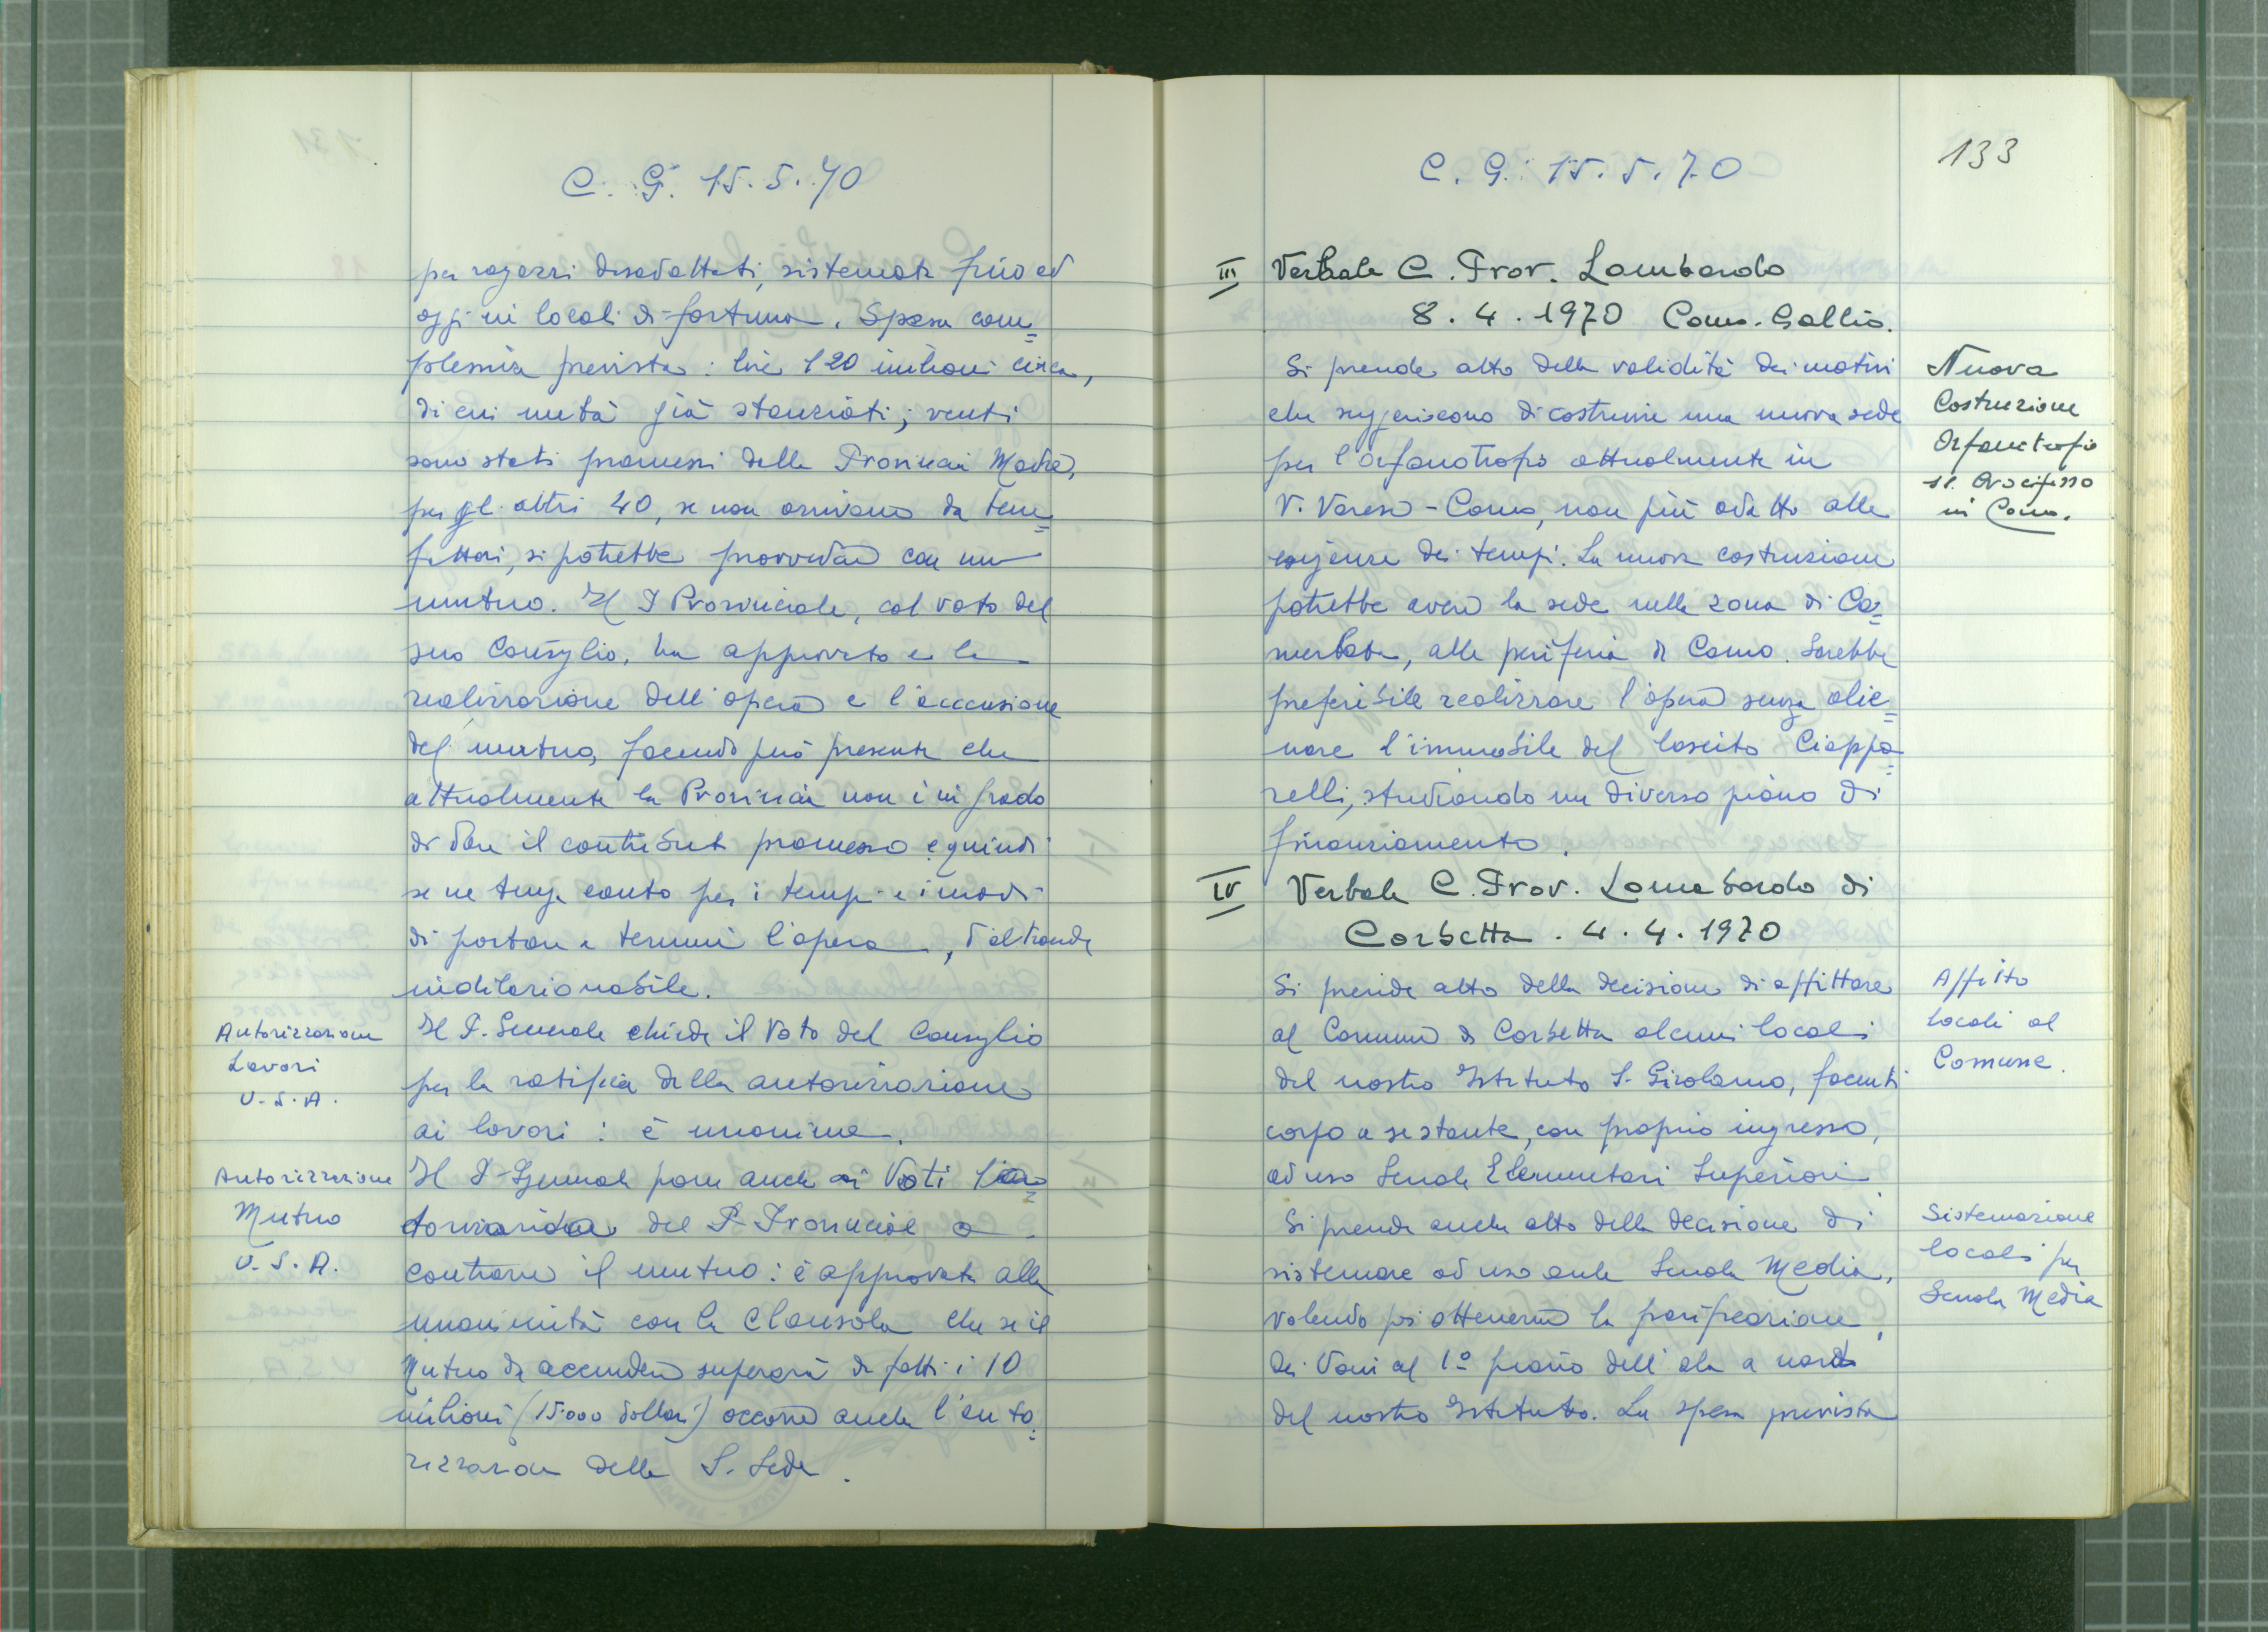 C. G. 15.5.70
per ragazzi disadattati, sistemati fino ad
oggi in locali di fortuna. Spesa com=
plessiva prevista: lire 120 milioni circa,
di cui metà già stanziati; venti
sono stati promessi dalla Provincia Madre,
per gl. altri 40, se non arrivano da bene=
fattori, si potrebbe provvedere con un
mutuo. Il P Provinciale, col voto del
suo Consiglio, ha approvato e la
realizzazione dell'opera e l'accensione
del mutuo, facendo però presente che
attualmente la Provincia non è in grado
di dare il contributo promesso e quindi
se ne tenga conto per i tempi e i modi
di portare a termine l'opera, d'altronde
indilazionabile.
Autorizzazione
Lavori
U.S.A.
Il P. Generale chiede il Voto del Consiglio
per la ratifica della autorizzazione
ai lavori: è unanime.
Autorizzazione
Mutuo
U.S.A.
Il P. Generale pone anche ai Voti l'au=
torizzazione del P. Provinciale a
contrarre il mutuo: è approvata alla
unanimità con la clausola che se il
Mutuo da accendere supererà di fatto i 10
milioni (15.000 dollari) occorre anche l'auto=
rizzazione della S. Sede.
C. G. 15.5.70
133
III Verbale C. Prov. Lombardo
8.4.1970 Como. Gallio.
Nuova
Costruzione
Orfanotrofio
SS. Crocifisso
in Como.
Si prende atto della validità dei motivi
che suggeriscono di costruire una nuova sede
per l'orfanotrofio attualmente in
V. Varese - Como, non più adatto alle
esigenze dei tempi. La nuova costruzione
potrebbe avere la sede nella zona di Ca=
merlata, alla periferia di Como. Sarebbe
preferibile realizzare l'opera senza alie=
nare l'immobile del lascito Ciappa=
relli, studiando un diverso piano di
finanziamento.
IV Verbale C. Prov. Lombardo di
Corbetta. 4.4.1970
Affitto
locali al
Comune.
Si prende atto della decisione di affittare
al Comune di Corbetta alcuni locali
del nostro Istituto S. Girolamo, facenti
corpo a se stante, con proprio ingresso,
ad uso Scuole Elementari Superiori.
Sistemazione
locali per
Scuola Media
Si prende anche atto della decisione di
sistemare ad uso aule Scuola Media,
volendo poi ottenerne la parificazione,
dei Vani al 1º piano dell'ala a nord
del nostro Istituto. La spesa prevista